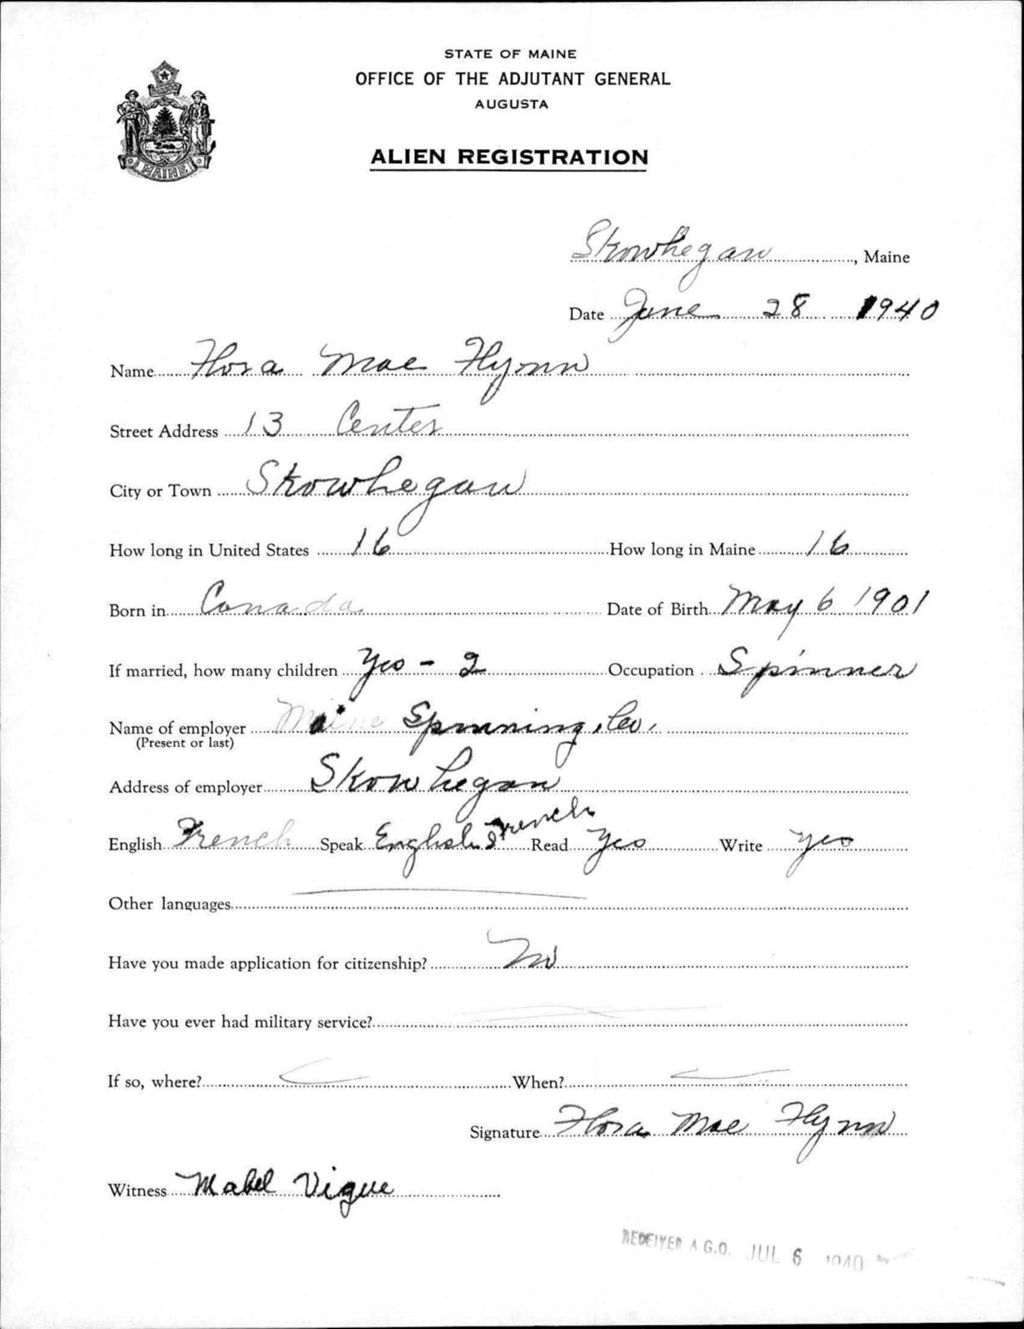 STATE OF MAINE
OFFICE OF THE ADJUTANT GENERAL
AUGUSTA
ALIEN REGISTRATION
MAINE
Skowhegan, Maine
Date June 28 1940
Name Flora Mae Flynn
Street Address 13 Center
City or Town Skowhegan
How long in United States 16 How long in Maine 16
Born in Canada Date of Birth May 6 1901
If married, how many children Yes - 2 Occupation Spinner
Name of employer Maine Spinning Co.
(Present or last)
Address of employer Skowhegan
English French Speak English & French Read Yes Write Yes
Other languages
Have you made application for citizenship? No
Have you ever had military service?
If so, where? When?
Signature Flora Mae Flynn
Witness Mabel Vigue
RECEIVED A.G.O. JUL 6 1940